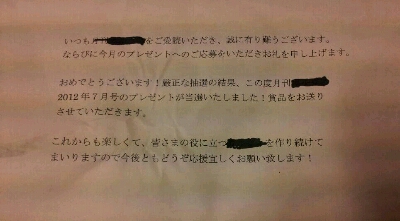 いつも月刊をご愛読いただき、誠に有り難うございます。
ならびに今月のプレゼントへのご応募をいただきお礼を申し上げます。
おめでとうございます！厳正な抽選の結果、この度月刊
2012年7月号のプレゼントが当選いたしました！賞品をお送り
させていただきます。
これからも楽しくて、皆さまの役に立つを作り続けて
まいりますので今後ともどうぞ応援宜しくお願い致します！